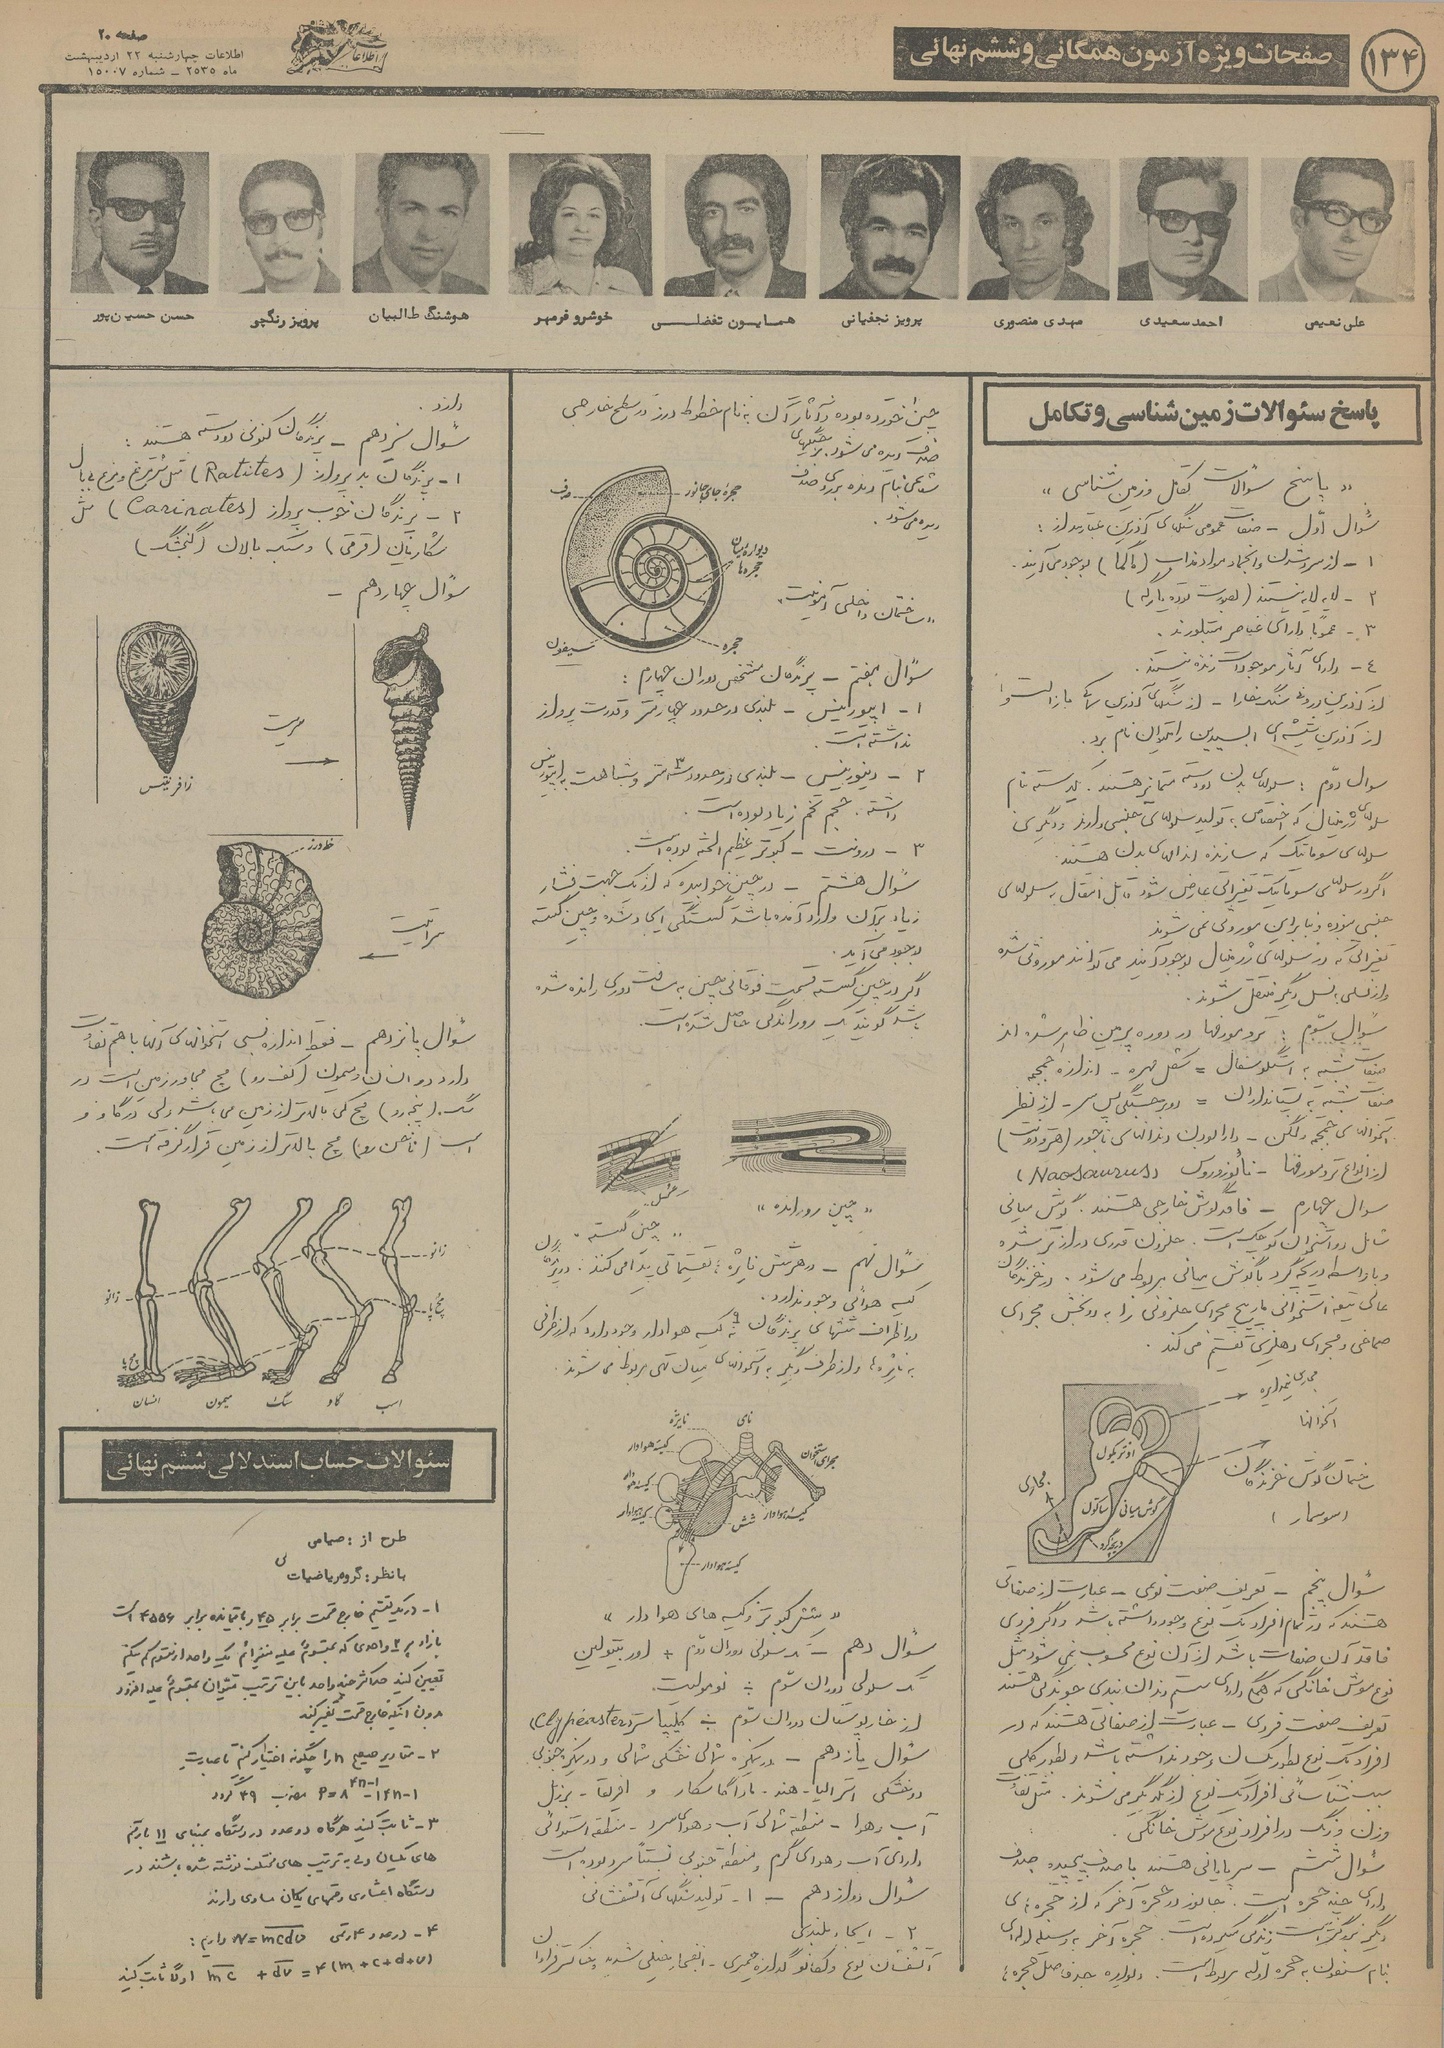 ۱۳۴
صفحات ویژه آزمون همگانی و ششم نهائی
صفحه ۲۰
اطلاعات چهارشنبه ۲۲ اردیبهشت
ماه ۲۵۳۵ ــ شماره ۱۵۰۰۷
اطلاعات
علی نعیمی
احمد سعیدی
مهدی منصوری
پرویز نجفیانی
همایون تفضلی
خوشرو فرمهر
هوشنگ طالبیان
پرویز رنگچی
حسن حسین‌پور
پاسخ سئوالات زمین شناسی و تکامل
«پاسخ سؤالات تکامل و زمین شناسی»
سؤال اول – صفات عمومی سنگهای آذرین عبارتند از :
۱ – از سرد شدن و انجماد مواد مذاب (ماگما) بوجود می‌آیند.
۲ – لایه لایه نیستند (بصورت توده یا رگه)
۳ – عموماً دارای عناصر متبلورند .
۴ – دارای آثار موجودات زنده نیستند.
از آذرین درونی سنگ خارا – از سنگهای آذرین بازالت و
از آذرین شیشه‌ای ابسیدین را میتوان نام برد.
سؤال دوم : سلولهای بدن دو دسته متمایز هستند. یکدسته بنام
سلولهای ژرمینال که اختصاص به تولید سلولهای جنسی دارند و دیگری
سلولهای سوماتیک که سازنده اندامهای بدن هستند.
اگر در سلولهای سوماتیک تغییراتی عارض شود قابل انتقال به سلولهای
جنسی نبوده و بنابراین موروثی نمی شوند
تغییراتی که در سلولهای ژرمینال بوجود آیند می‌توانند موروثی شده
و از نسلی به نسل دیگر منتقل شوند.
سؤال سوم : ترومورفها در دوره پرمین ظاهر شده اند
صفات شبیه به استگوسفال = شکل مهره – اندازه جمجمه
صفات شبیه به پستانداران = دو برجستگی پس سر – از نظر
استخوانهای جمجمه و لگن – دارا بودن دندانهای ناجور (هترودونت)
از انواع ترومورفها – نائوزوروس (Naosaurus)
سؤال چهارم – فاقد گوش خارجی هستند. گوش میانی
شامل دو استخوان کوچک است. حلزون قدری درازتر شده
و بواسطه دریچه گرد با گوش میانی مربوط می شود . در خزندگان
عالی تیغه استخوانی مارپیچ مجرای حلزونی را به دو بخش مجرای
صماخی و مجرای دهلیزی تقسیم می کند .
مجاری نیمدایره
استخوانها
اوتریکول
ساختمان گوش خزندگان
(سوسمار)
مجاری
ساکول
گوش میانی
دریچه گرد
سؤال پنجم – تعریف صفت نوعی – عبارت از صفاتی
هستند که در تمام افراد یک نوع وجود داشته باشد و اگر فردی
فاقد آن صفات باشد از آن نوع محسوب نمی شود مثل
نوع موش خانگی که همگی دارای سیستم دندان بندی جوندگی هستند
تعریف صفت فردی – عبارت از صفاتی هستند که در
افراد یک نوع بطور یکسان وجود نداشته باشد و بطور کلی
سبب شناسائی افراد یک نوع از یکدیگر می شوند . مثل تفاوت
وزن و رنگ در افراد نوع موش خانگی .
سؤال ششم – سرپایانی هستند با صدف پیچیده صدف
دارای چند حجره است . جانور در حجره آخر که از حجره‌های
دیگر بزرگتر است زندگی میکرده است. حجره آخر بوسیله لوله‌ای
بنام سیفون به حجره اولیه مربوط است . دیواره حد فاصل حجره‌ها
چین خورده بوده و آثار آن بنام خطوط درز در سطح خارجی
صدف دیده می شود.
دیده می شود .
صدف
حجره جای جانور
دیواره میان
حجره‌ها
حجره
سیفون
«ساختمان داخلی آمونیت»
سؤال هفتم – پرندگان مشخص دوران چهارم :
۱ – اپیورنیس – بلندی در حدود چهار متر و قدرت پرواز
نداشته است .
۲ – دینورنیس – بلندی در حدود سه متر و شباهت به اپیورنیس
داشته . حجم تخم زیاد بوده است .
۳ – درونت – کبوتر عظیم الجثه بوده است.
سؤال هشتم – در چین خوابیده که از یک جهت فشار
زیاد بر آن وارد آمده باشد گسستگی ایجاد شده و چین گسسته
بوجود می آید .
اگر در چین گسسته قسمت فوقانی چین به مسافت دوری رانده شده
باشد گویند یک رورانده‌گی حاصل شده است.
«چین رورانده»
گسل
«چین گسسته»
سؤال نهم – در هر شش نایژه تقسیماتی پیدا می کنند .
کیسه هوائی وجود ندارد .
در اطراف ششهای پرندگان ۹ کیسه هوا دار وجود دارد که از طرفی
به نایژه‌ها و از طرف دیگر به استخوانهای میان تهی مربوط می شوند .
نای
نایژه
مجرای استخوان
کیسه هوادار
کیسه هوادار
کیسه هوادار
کیسه هوادار
شش
کیسه هوادار
«شش کبوتر و کیسه های هوا دار»
سؤال دهم – تک سلولی دوران دوم : اوربیتولین
تک سلولی دوران سوم : نومولیت.
از خارپوستان دوران سوم : کلیپاستر (Clypeaster)
سؤال یازدهم – در نیمکره شمالی خشکی شمالی و در نیمکره جنوبی
دو خشکی استرالیا – هند – ماداگاسکار و افریقا – برزیل
آب و هوا – منطقه شمالی آب و هوای سرد – منطقه استوائی
دارای آب و هوای گرم و منطقه جنوبی نسبتاً سرد بوده است
سؤال دوازدهم – ۱ – تولید سنگهای آتشفشانی
۲ – ایجاد بلندی
آتشفشان نوع ولکانو گدازه خمیری – انفجار خیلی شدید و خاکستر فراوان
دارند .
سؤال سیزدهم – پرندگان کنونی دو دسته هستند :
۱ – پرندگان بد پرواز (Ratites) مثل شترمرغ و مرغ بی بال
۲ – پرندگان خوب پرواز (Carinates) مثل
شکاریان (قرقی) و سبک بالان (گنجشک)
سؤال چهاردهم –
زافرنتیس
خط درز
سراتیت
سؤال پانزدهم – فقط اندازه نسبی استخوانهای آنها با هم تفاوت
دارد در انسان و میمون (کف رو) مچ مجاور زمین است در
سگ (پنجه رو) مچ کمی بالاتر از زمین می باشد ولی در گاو و
اسب (ناخن رو) مچ بالاتر از زمین قرار گرفته است .
زانو
زانو
مچ پا
مچ پا
اسب
گاو
سگ
میمون
انسان
سئوالات حساب استدلالی ششم نهائی
طرح از : صیامی
بانظر : گروه ریاضیات
۱ – در یک تقسیم خارج قسمت برابر ۴۵ و باقیمانده برابر ۴۵۵۶ است
بازاء هر ۲ واحدی که بمقسوم علیه میفزائیم یک واحد از مقسوم کم میکنیم
تعیین کنید حداکثر چند واحد باین ترتیب میتوان بمقسوم علیه افزود
بدون آنکه خارج قسمت تغییر کند
۲ – مقادیر صحیح n را چگونه اختیار کنیم تا عبارت
۳ – ثابت کنید هرگاه دو عدد در دستگاه بمبنای ۱۱ با رقم
های یکسان ولی به ترتیب های مختلف نوشته شده باشند در
دستگاه اعشاری رقمهای یکان مساوی دارند
۴ – در عدد ۴ رقمی N = mcdu داریم :
mc + du = ۴(m + c + d + u) اولاً ثابت کنید